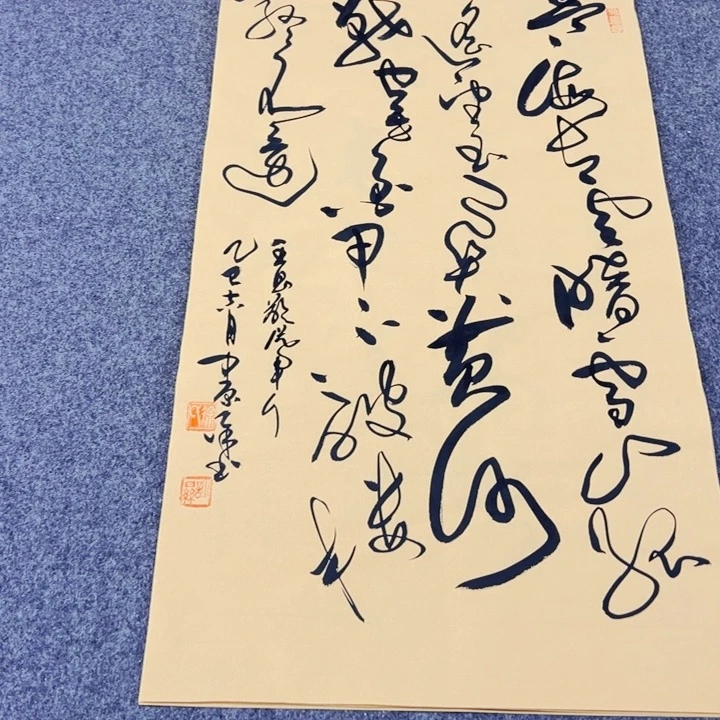 青海长云暗雪山孤
遥望玉门关黄沙
战穿金甲不破楼兰
终不还
王昌龄从军行
乙巳六月中原书